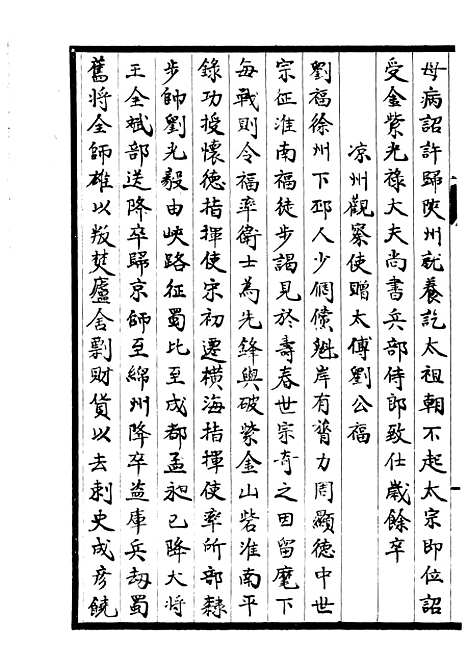 母病詔許歸陝州就養訖太祖朝不起太宗即位詔
受金紫光祿大夫尚書兵部侍郎致仕歲餘卒
凉州觀察使贈太傅劉公福
劉福徐州下邳人少倜儻魁岸有膂力周顯德中世
宗征淮南福徒步謁見於壽春世宗奇之因留麾下
每戰則令福率衛士為先鋒與破紫金山砦淮南平
錄功授懷德指揮使宋初遷橫海指揮使率所部隸
步帥劉光毅由峽路征蜀比至成都孟昶已降大將
王全斌部送降卒歸京師至綿州降卒盗庫兵劫蜀
舊將全師雄以叛焚廬舍剽財貨以去刺史成彥饒